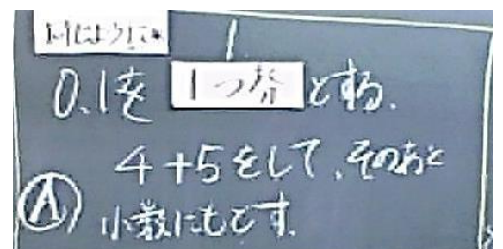 同じようにして
0.1を 1つ分 とする.
4+5をして、そのあと
Ⓐ 小数にもどす.